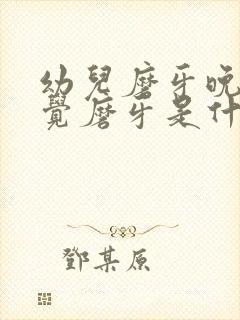 幼兒磨牙晚
覺磨牙是什
鄧某原